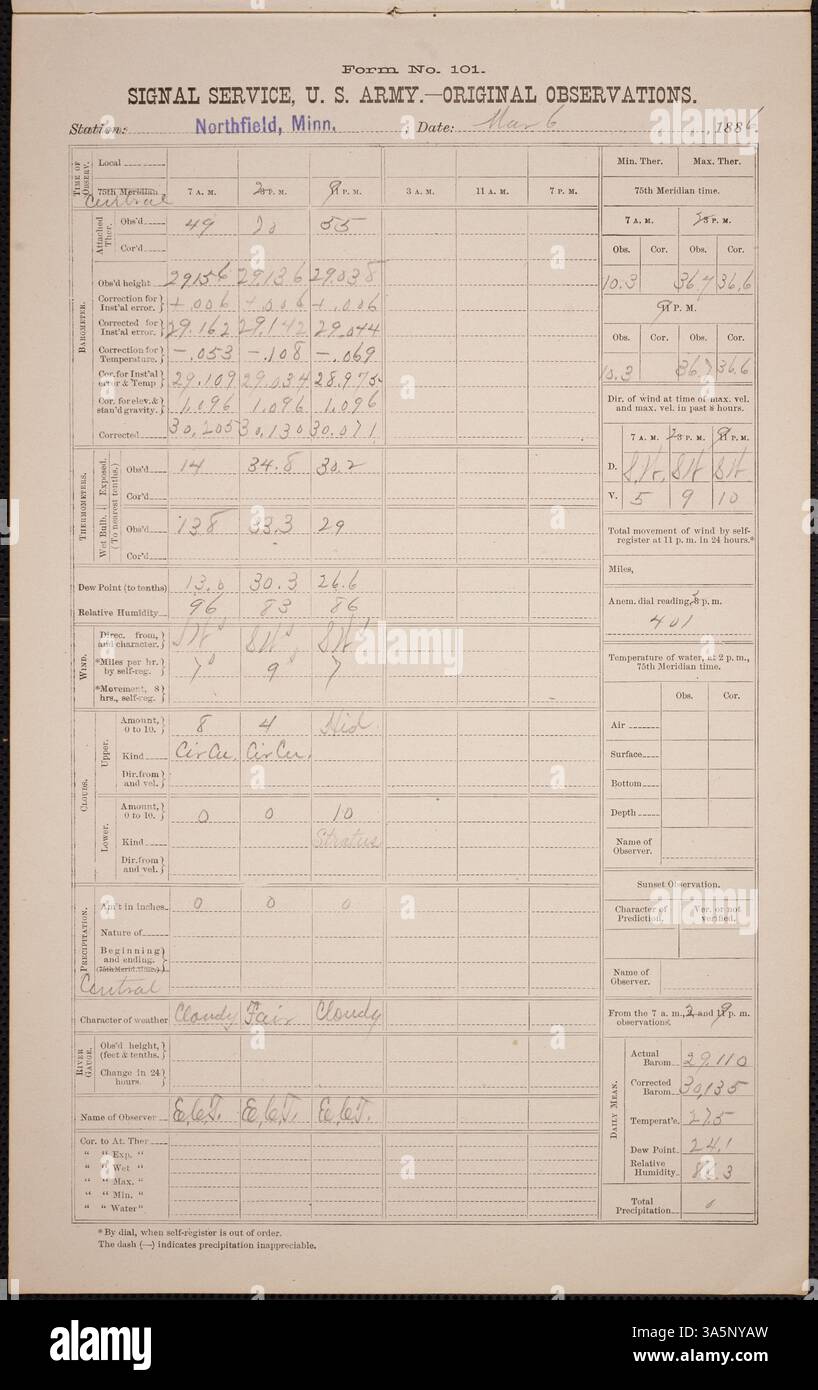 Form No. 101.
SIGNAL SERVICE, U. S. ARMY.—ORIGINAL OBSERVATIONS.
Station: Northfield, Minn. Date: Mar 6, 1886
TIME OF OBSERV.
Local
75th Meridian 7 A. M. 3 P. M. 11 P. M. 3 A. M. 11 A. M. 7 P. M.
Central 2 9
Attached Ther.
Obs'd 49 70 55
Cor'd
BAROMETER.
Obs'd height 29.156 29.136 29.038
Correction for Inst'al error. +.006 +.006 +.006
Corrected for Inst'al error. 29.162 29.142 29.044
Correction for Temperature. -.053 -.108 -.069
Cor. for Inst'al error & Temp 29.109 29.034 28.975
Cor. for elev. & stan'd gravity. 1.096 1.096 1.096
Corrected 30.205 30.130 30.071
THERMOMETERS.
Exposed.
(To nearest tenths.)
Obs'd 14 34.8 30.2
Cor'd
Wet Bulb.
Obs'd 13.8 33.3 29
Cor'd
Dew Point (to tenths) 13.0 30.3 26.6
Relative Humidity 96 83 86
WIND.
Direc. from, and character. SW SW SW
*Miles per hr. by self-reg. 7 9 7
*Movement, 8 hrs., self-reg.
CLOUDS.
Upper.
Amount, 0 to 10. 8 4 Hid
Kind Cir Cu. Cir Cu.
Dir. from and vel.
Lower.
Amount, 0 to 10. 0 0 10
Kind Stratus
Dir. from and vel.
PRECIPITATION.
Am't in inches 0 0 0
Nature of
Beginning and ending.
(75th Merid. time.)
Central
Character of weather Cloudy Fair Cloudy
RIVER GAUGE.
Obs'd height, (feet & tenths.)
Change in 24 hours.
Name of Observer E.C.T. E.C.T. E.C.T.
Cor. to At. Ther
" " Exp. "
" " Wet "
" " Max. "
" " Min. "
" " Water "
Min. Ther. Max. Ther.
75th Meridian time.
7 A. M. 3 P. M.
Obs. Cor. Obs. Cor.
10.3 36.7 36.6
11 P. M.
Obs. Cor. Obs. Cor.
10.3 36.7 36.6
Dir. of wind at time of max. vel. and max. vel. in past 8 hours.
7 A. M. 3 P. M. 11 P. M.
D. S.W. SW SW
V. 5 9 10
Total movement of wind by self-register at 11 p. m. in 24 hours.*
Miles,
Anem. dial reading, 3 p. m.
401
Temperature of water, at 2 p. m., 75th Meridian time.
Obs. Cor.
Air
Surface
Bottom
Depth
Name of Observer.
Sunset Observation.
Character of Prediction. Ver. or not verified.
Name of Observer.
From the 7 a. m., 2 and 11 9 p. m. observations.
DAILY MEAN.
Actual Barom. 29.110
Corrected Barom. 30.135
Temperat'e. 27.5
Dew Point
24.1
Relative Humidity
Total Precipitation 0
* By dial, when self-register is out of order.
The dash (—) indicates precipitation inappreciable.
alamy
Image ID: 3A5NYAW
www.alamy.com